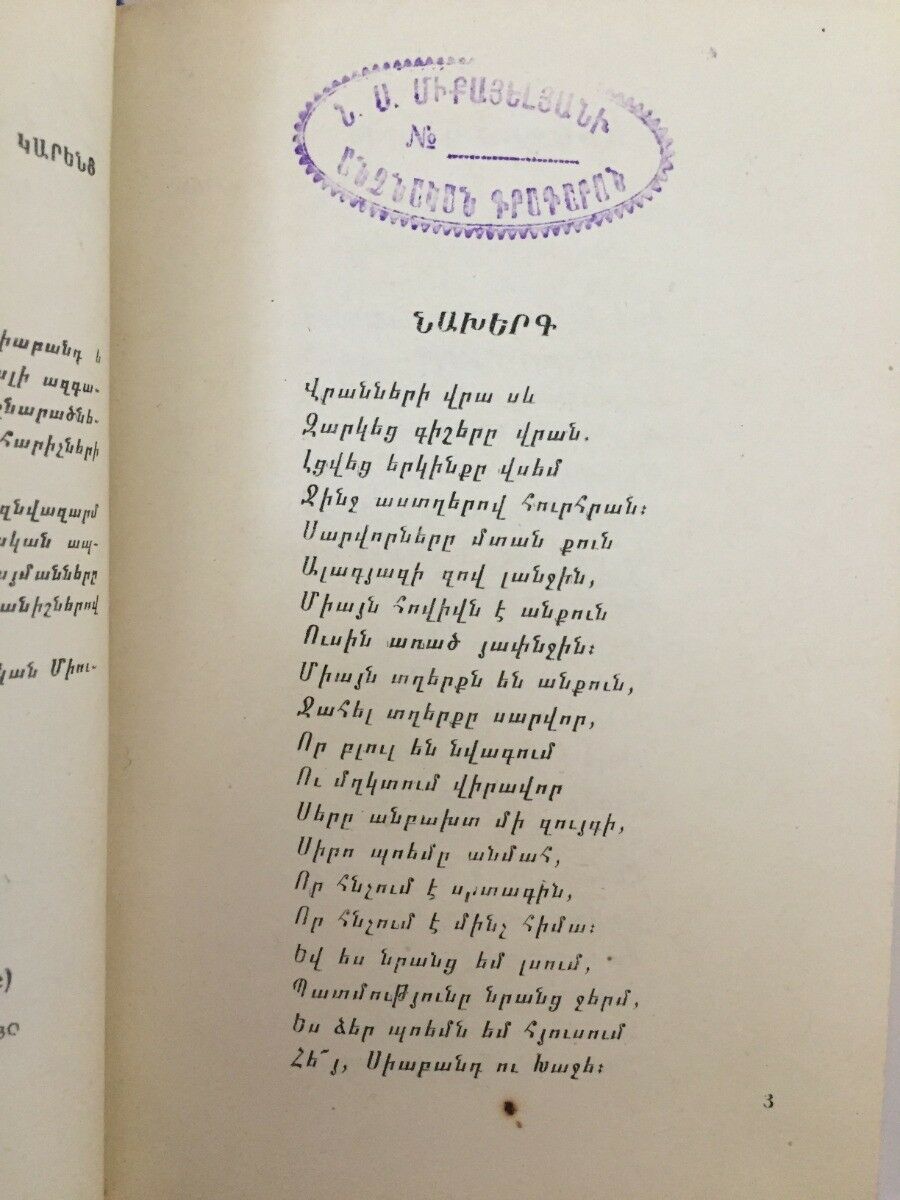 ԿԱՐԵՆՑ
իաբանդ և
ալի ազգա-
նարածնե-
Հարիչների
զնվազարմ
ական ապ-
այմանները
անիշներով
կան Միու-
Ն. Ս. ՄԻՔԱՅԵԼՅԱՆԻ
№
ԱՆՁՆԱԿԱՆ ԳՐԱԴԱՐԱՆ
ՆԱԽԵՐԳ
Վրանների վրա սև
Զարկեց գիշերը վրան.
Լցվեց երկինքը վսեմ
Ջինջ աստղերով հուրհրան։
Սարվորները մտան քուն
Ալագյազի զով լանջին,
Միայն հովիվն է անքուն
Ուսին առած յափնջին։
Միայն տղերքն են անքուն,
Ջահել տղերքը սարվոր,
Որ բլուլ են նվագում
Ու մղկտում վիրավոր
Սերը անբախտ մի զույգի,
Սիրո պոեմը անմահ,
Որ հնչում է սրտագին,
Որ հնչում է մինչ հիմա։
Եվ ես նրանց եմ լսում,
Պատմությունը նրանց ջերմ,
Ես ձեր պոեմն եմ հյուսում
Հե՜յ, Սիաբանդ ու Խաջե։
3